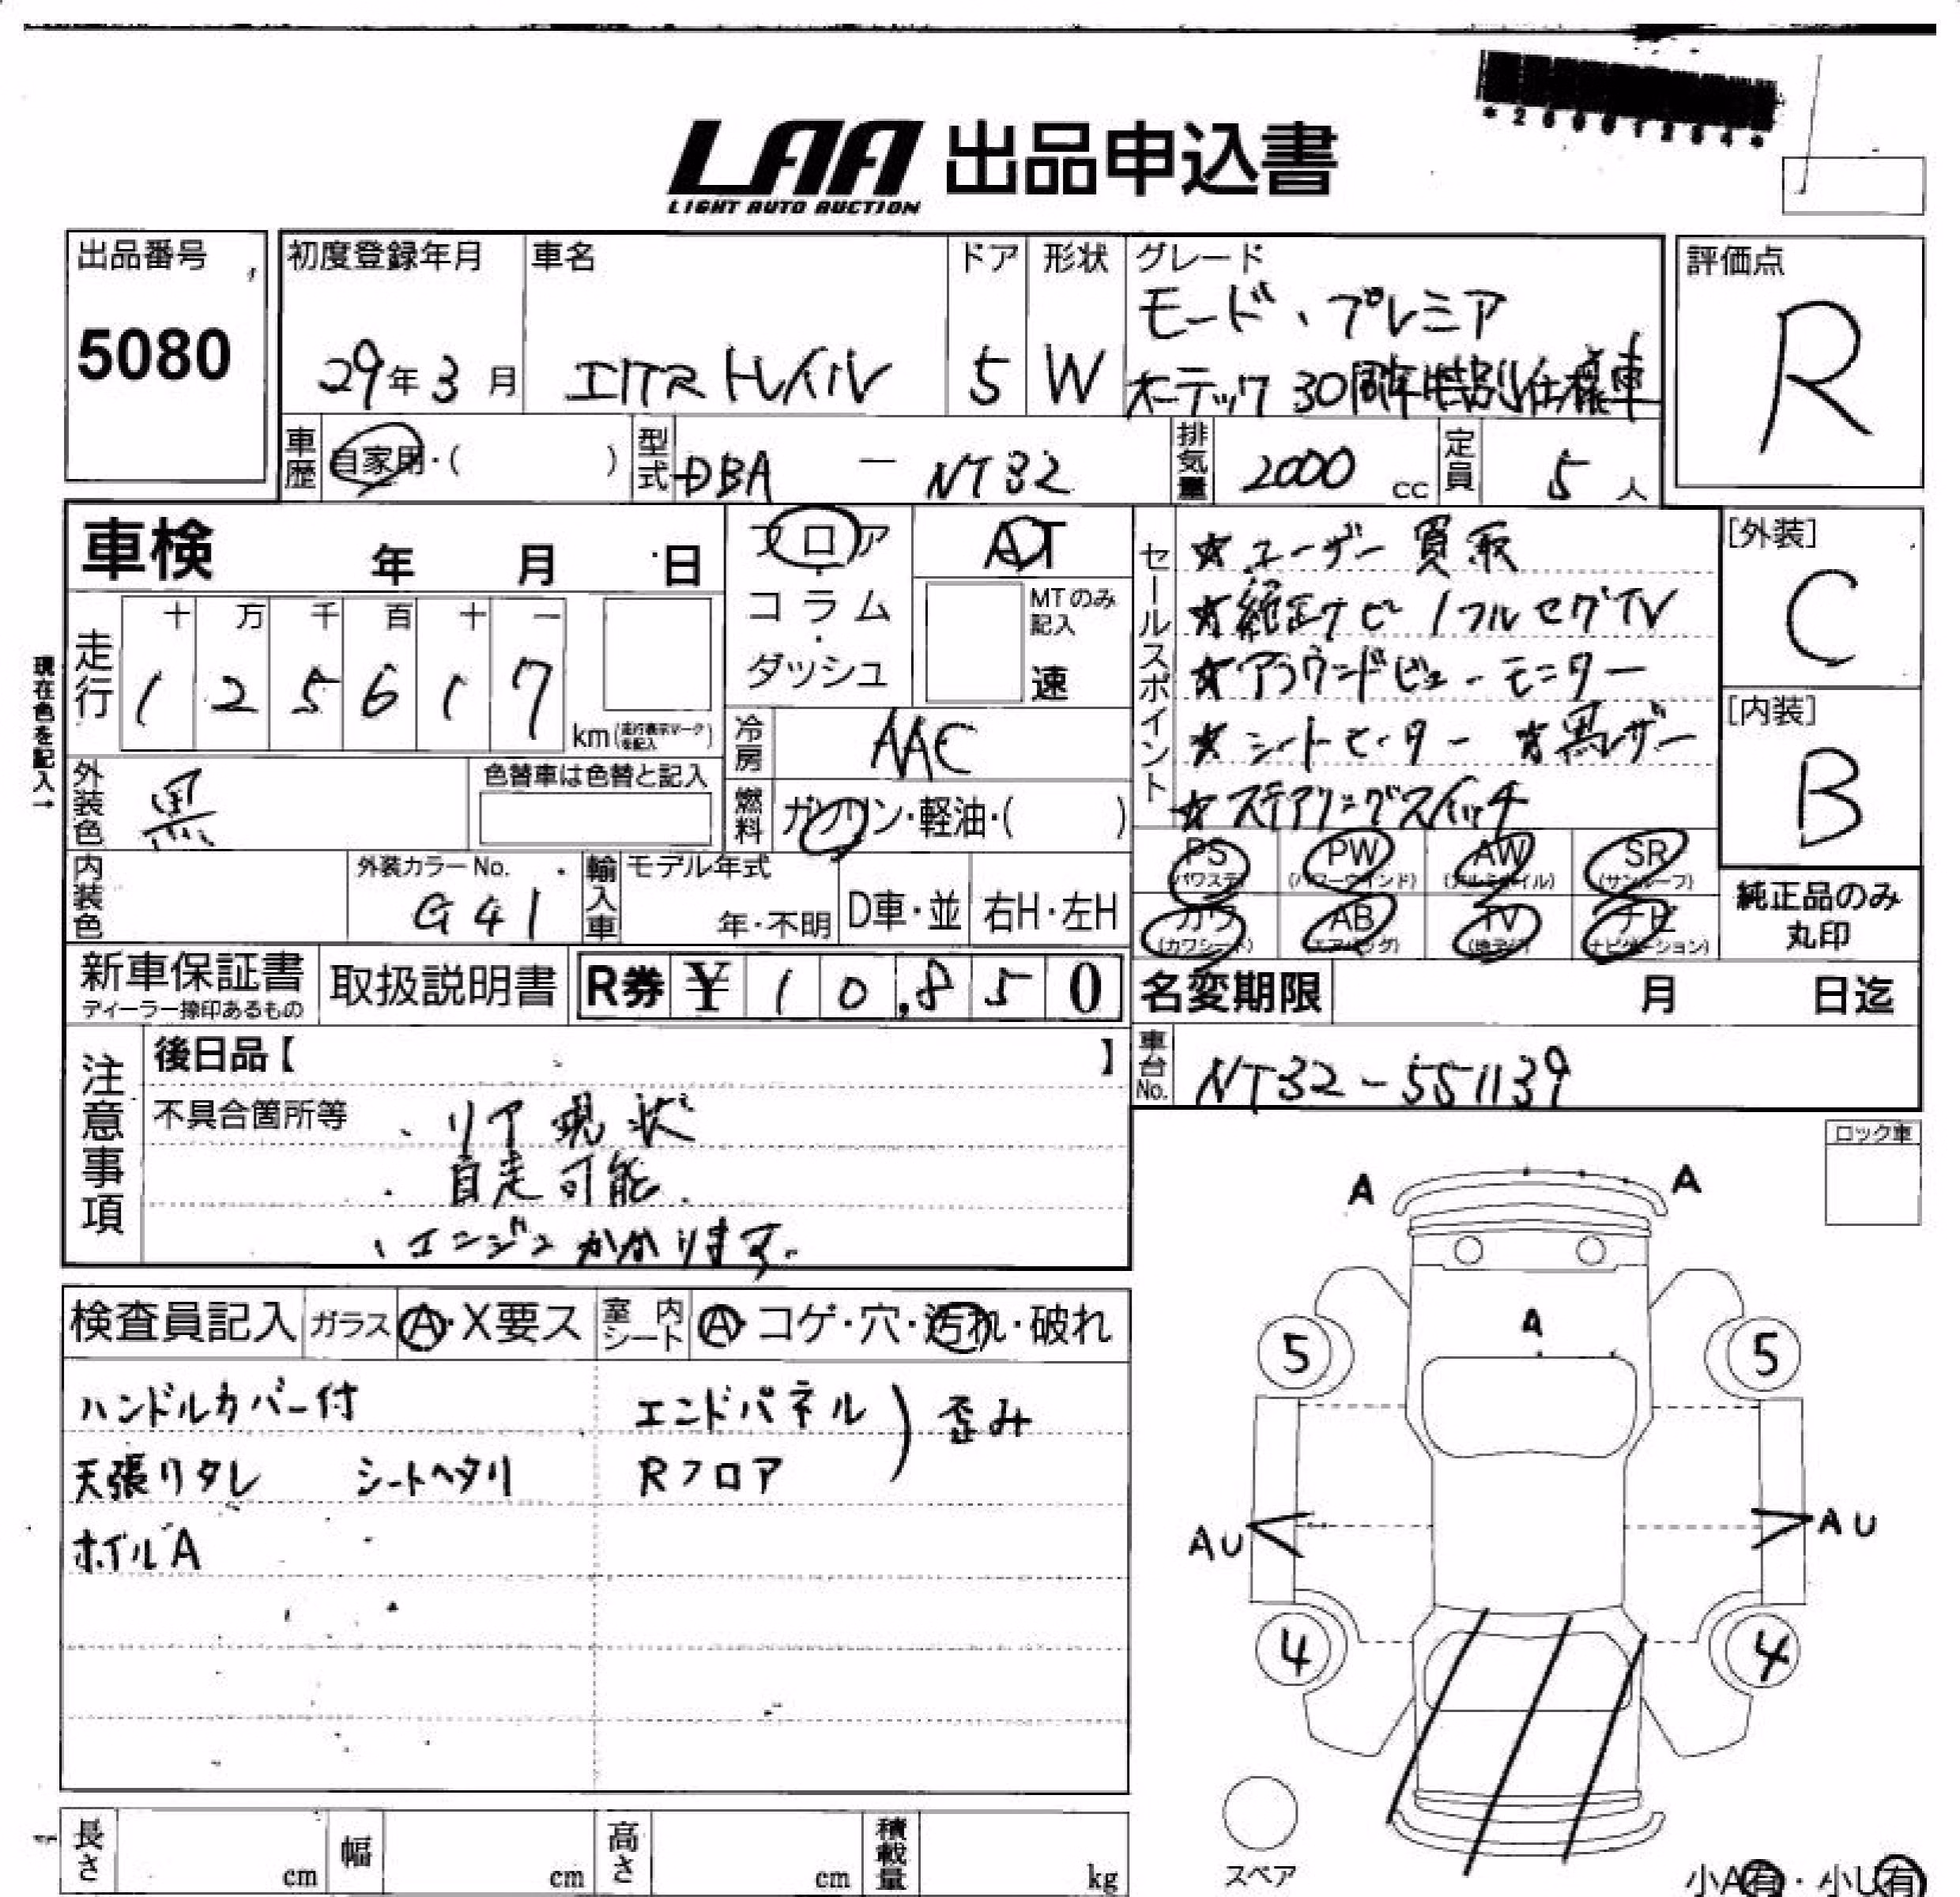 LAA 出品申込書
LIGHT AUTO AUCTION
出品番号
5080
初度登録年月
29年3月
車名
エクストレイル
ドア
5
形状
W
グレード
モード・プレミア
オーテック30周年特別仕様車
評価点
R
車歴
自家用・( )
型式
DBA - NT32
排気量
2000 cc
定員
5人
車検 年 月 日
フロア
・
コラム
・
ダッシュ
AT
MTのみ
記入
速
走行
十 万 千 百 十 一
1 2 5 6 1 7
km (走行表示マークを記入)
現在色を記入→
冷房
AAC
外装色
黒
色替車は色替と記入
燃料
ガソリン・軽油・( )
内装色
外装カラーNo.
G41
輸入車
モデル年式
年・不明
D車・並
右H・左H
セールスポイント
★ユーザー買取
★純正ナビ/フルセグTV
★アラウンドビューモニター
★シートヒーター ★黒レザー
★ステアリングスイッチ
[外装]
C
[内装]
B
PS
(パワステ)
PW
(パワーウインド)
AW
(アルミホイル)
SR
(サンルーフ)
カワ
(カワシート)
AB
(エアバッグ)
TV
(地デジ)
ナビ
(ナビゲーション)
純正品のみ
丸印
新車保証書
ディーラー捺印あるもの
取扱説明書
R券 ¥ 10,850
名変期限 月 日迄
車台No.
NT32-551139
注意事項
後日品【 】
不具合箇所等
・リア現状
・自走可能.
・エンジンかかります.
ロック車
検査員記入
ガラス
A・X要ス
室内シート
A・コゲ・穴・汚れ・破れ
ハンドルカバー付
エンドパネル ) 歪み
天張りタレ シートヘタリ
Rフロア
ホイルA
A A
A
5 5
AU AU
4 4
スペア
小A有・小U有
長さ cm
幅 cm
高さ cm
積載量 kg